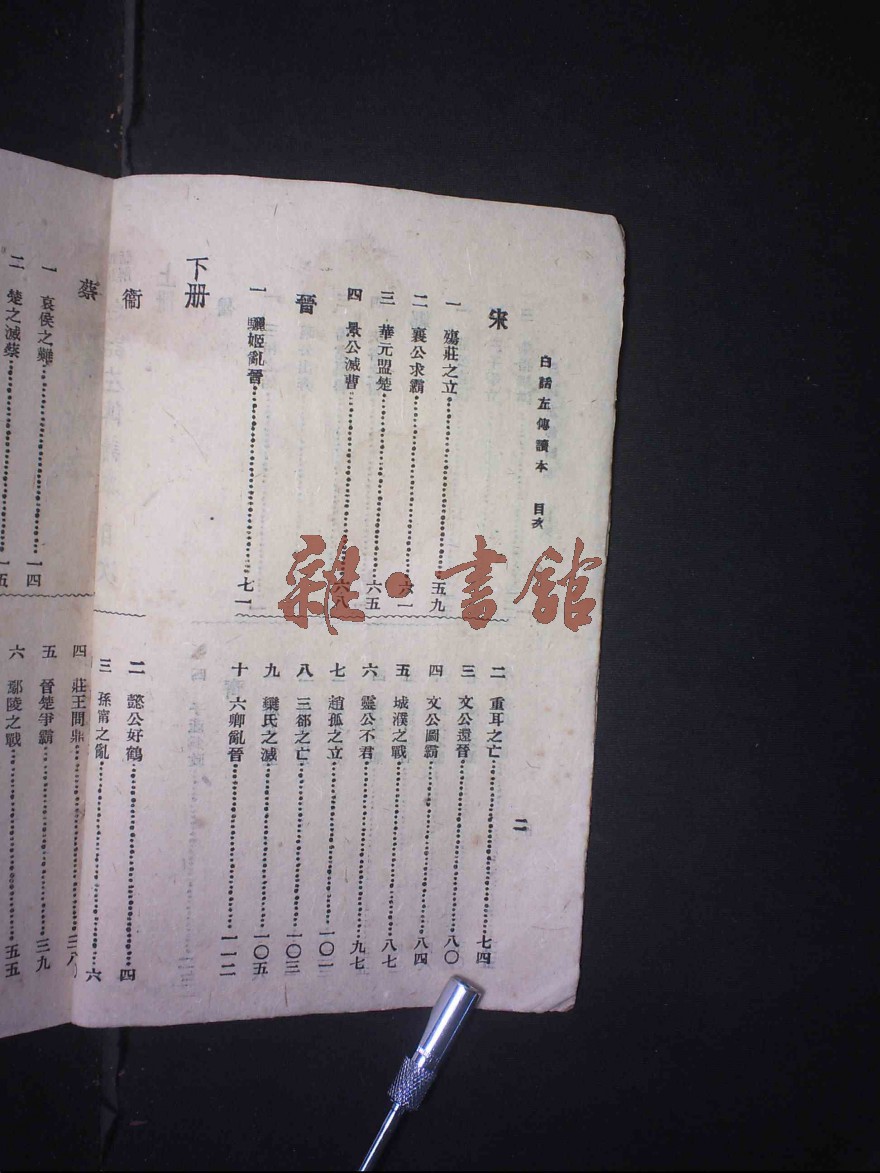 白話左傳讀本 目次
二
宋
一 殤莊之立 五九
二 襄公求霸 六一
三 華元盟楚 六五
四 景公滅曹 六八
晉
一 驪姬亂晉 七一
二 重耳之亡 七四
三 文公還晉 八〇
四 文公圖霸 八四
五 城濮之戰 八七
六 靈公不君 九七
七 趙孤之立 一〇一
八 三郤之亡 一〇三
九 欒氏之滅 一〇五
十 六卿亂晉 一一二
下册
衞
二 懿公好鶴 四
三 孫甯之亂 六
蔡
一 哀侯之難 一四
二 楚之滅蔡 一五
四 莊王問鼎 三八
五 晉楚爭霸 三九
六 鄢陵之戰 五五
雜·書館